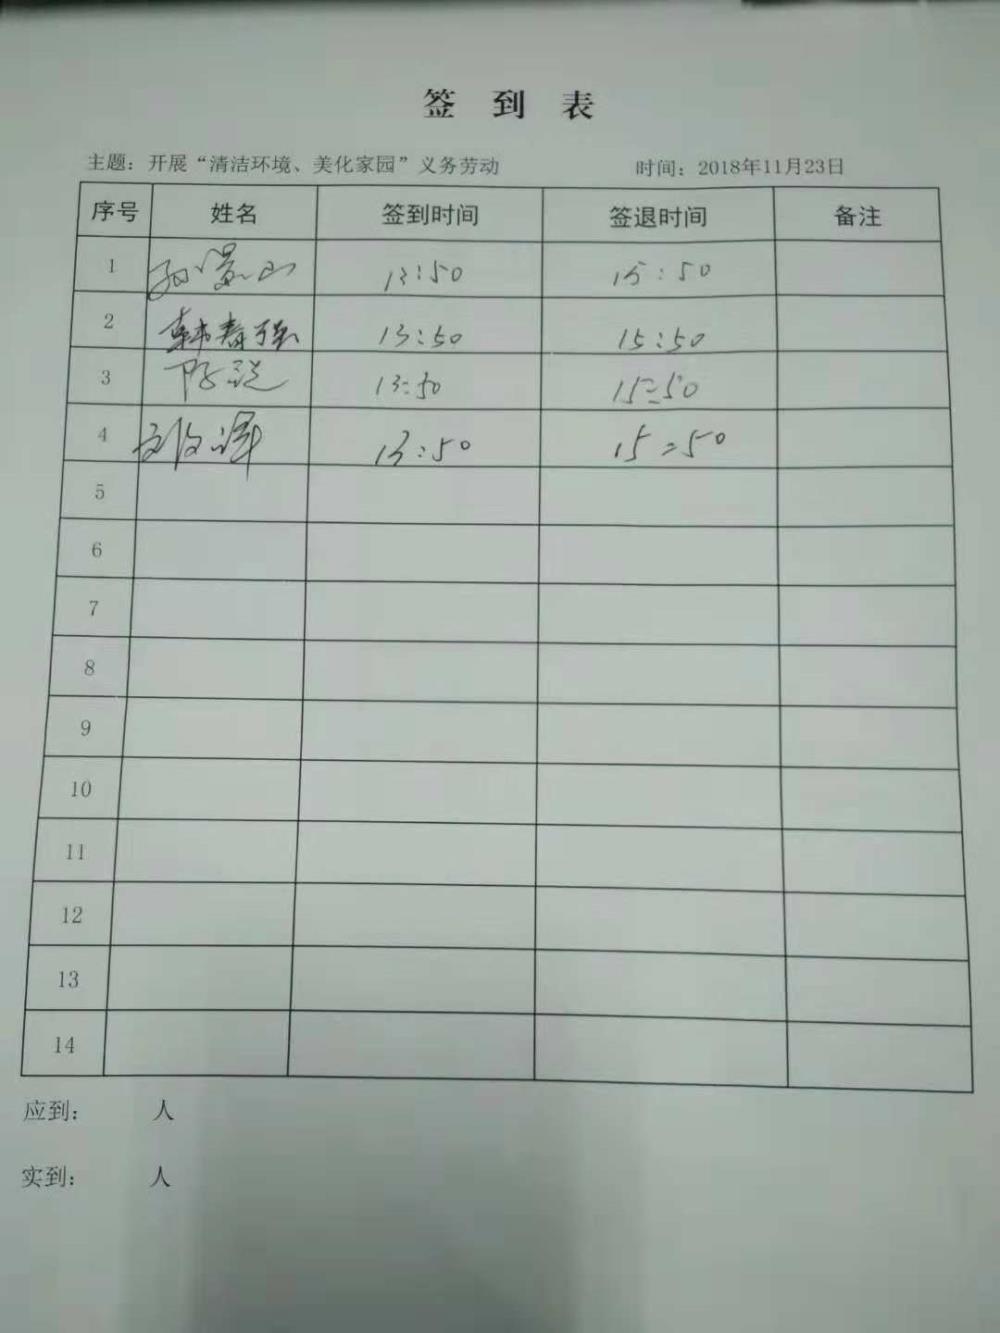 签 到 表
主题：开展“清洁环境、美化家园”义务劳动 时间：2018年11月23日
序号 姓名 签到时间 签退时间 备注
1 13:50 15:50
2 韩春强 13:50 15:50
3 13:50 15:50
4 13:50 15:50
5
6
7
8
9
10
11
12
13
14
应到： 人
实到： 人